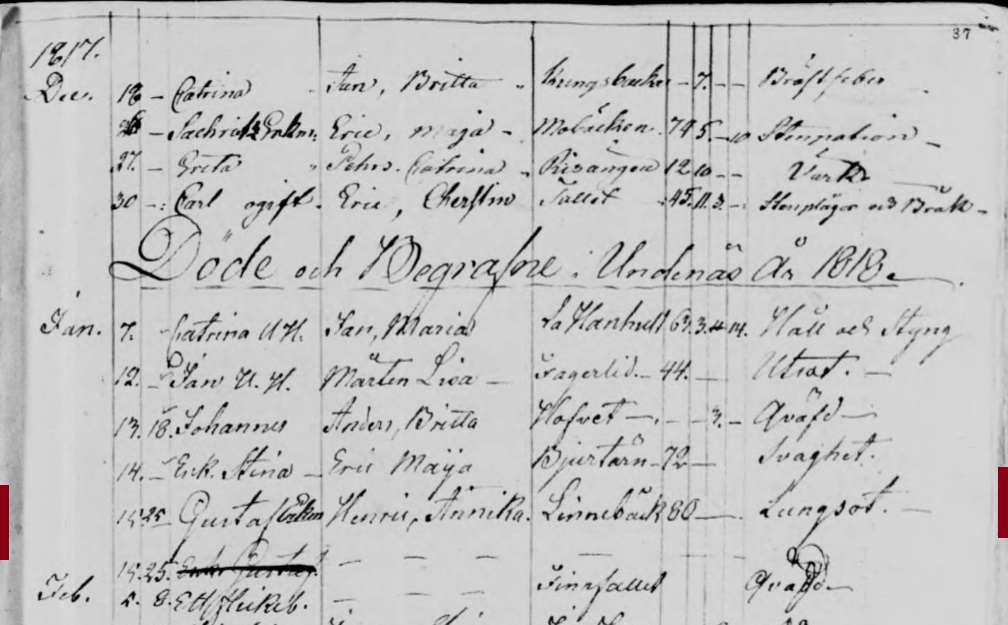 37
1817.
Dec. 18 – Catrina Jan, Britta Kungsbacken – 7. – – Bröstfeber
26 – Enkm: Eric, Maja – Mobäcken 74 5 – 10 Stenpation –
27. – Greta Pehr. Catrina Risängen 12 10 – – Värk
30 – Carl ogift. Eric, Cherstin Tallet 45. 11. 3. – Stenplågor och Bråk –
Döde och Begrafne i Undenäs År 1818.
Jan. 7. Catrina U. H. Jan, Maria La Hanhult 63. 3. 4 14. Håll och Styng
12. – Jan U. H. Mårten Lisa – Fagerlid. – 44. – Utsot. –
13. 18. Johannes Anders, Britta Hofvet – . – – 3. – Qväfd –
14. – Enk. Stina – Eric Maija Bjurtärn – 72 – Svaghet.
15 25 Gustaf Enkm Henric, Annika. Linnebäck 80 – Lungsot. –
15. 25. Enkl Gustaf – – – – –
Feb. 5. 8. Ett flickeb. – – – Finnfallet Qväfd –